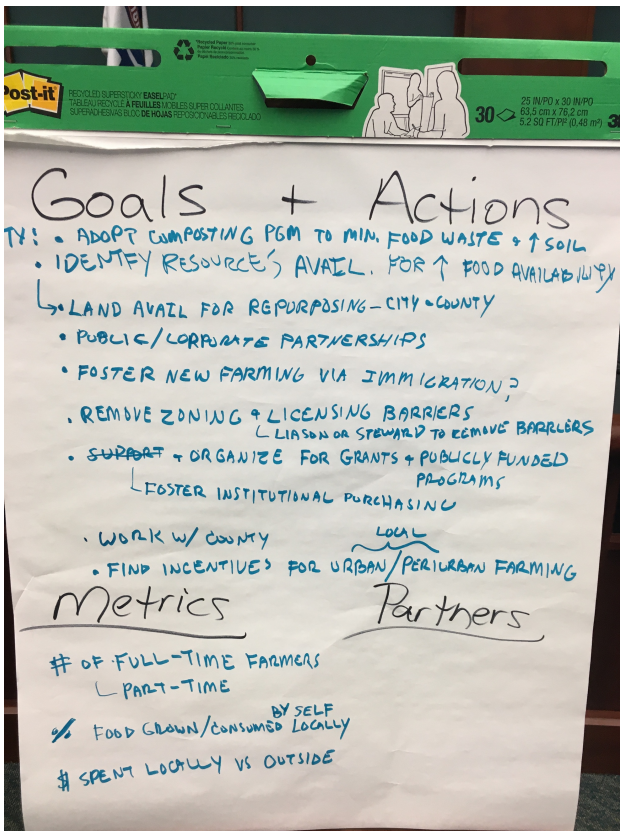 Post-it
RECYCLED SUPERSTICKY EASELPAD
TABLEAU RECYCLÉ À FEUILLES MOBILES SUPER COLLANTES
SUPERADHESIVAS BLOC DE HOJAS REPOSICIONABLES RECICLADO
Recycled Paper
Papier Recyclé
30
25 IN/PO x 30 IN/PO
63,5 cm x 76,2 cm
5.2 SQ FT/PI² (0,48 m²)
Goals + Actions
TY: • ADOPT COMPOSTING PGM TO MIN. FOOD WASTE + ↑ SOIL
• IDENTFY RESOURCE'S AVAIL. FOR ↑ FOOD AVAILABILITY
↳ • LAND AVAIL FOR REPURPOSING - CITY + COUNTY
• PUBLIC/CORPORATE PARTNERSHIPS
• FOSTER NEW FARMING VIA IMMIGRATION?
• REMOVE ZONING + LICENSING BARRIERS
└ LIASON OR STEWARD TO REMOVE BARRIERS
• SUPPORT + ORGANIZE FOR GRANTS + PUBLICLY FUNDED
PROGRAMS
└ FOSTER INSTITUTIONAL PURCHASING
• WORK W/ COUNTY
LOCAL
• FIND INCENTIVES FOR URBAN/PERIURBAN FARMING
Metrics
Partners
# OF FULL-TIME FARMERS
└ PART-TIME
BY SELF
% FOOD GROWN/CONSUMED LOCALLY
$ SPENT LOCALLY VS OUTSIDE